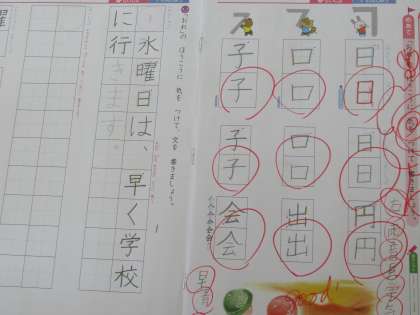 日
日
日
日
円
円
口
口
口
口
出
出
子
子
子
子
会
会
good!
「おれ」の ほうこうに 気を つけて、文を 書きましょう。
水曜日は、早く学校
に行きます。